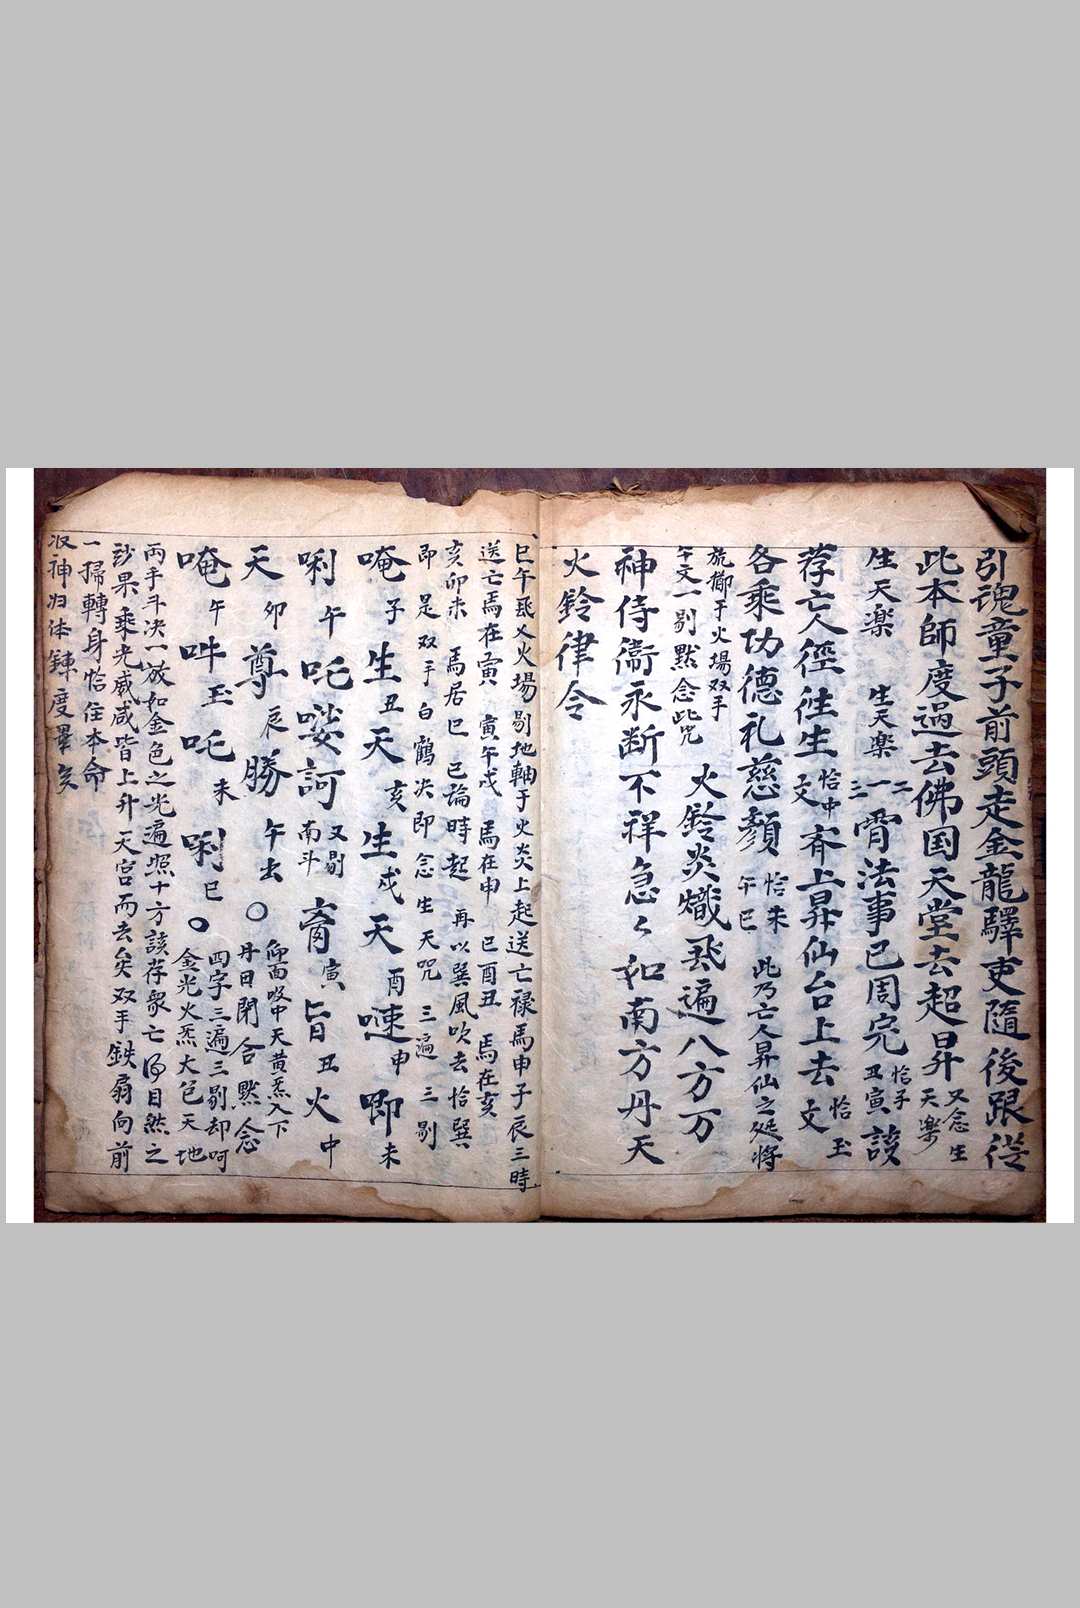 引魂童子前頭走金龍驛吏隨後跟從
此本師度過去佛国天堂去超昇又念生天樂
生天楽 生天楽 二一三 霄法事已周完 恰子丑寅 該
荐亡人徑往生 恰中文 斉上昇仙台上去 恰玉文
各乘功德礼慈顏 恰未午巳 此乃亡人昇仙之延将
旄擲于火場双手
午文一剔黙念此咒 火鈴炎熾飛遍八方万
神侍衞永断不祥急々如南方丹天
火鈴律令
巳午飛火火場剔地軸于火炎上起送亡禄馬申子辰三時
送亡馬在寅 寅午戌 馬在申 巳酉丑 馬在亥
亥卯未 馬居巳 已論時起 再以巽風吹去恰巽
即是双手白鶴决即念生天咒 三遍 三剔
唵子生丑天亥生戌天酉㖦申唧未
唎午吒㗚訶 又剔南斗 育寅旨丑火中
天卯尊辰勝午出〇 仰面吸中天黄炁入下丹田閉合黙念
唵午吽玉吒未唎巳〇 四字三遍三剔却呵金光火炁大包天地
兩手斗决一放如金色之光遍照十方該荐衆亡 自然之
玅果乘光威咸皆上升天宫而去矣双手鉄扇向前
一掃轉身恰住本命
收神归体鍊度畢矣